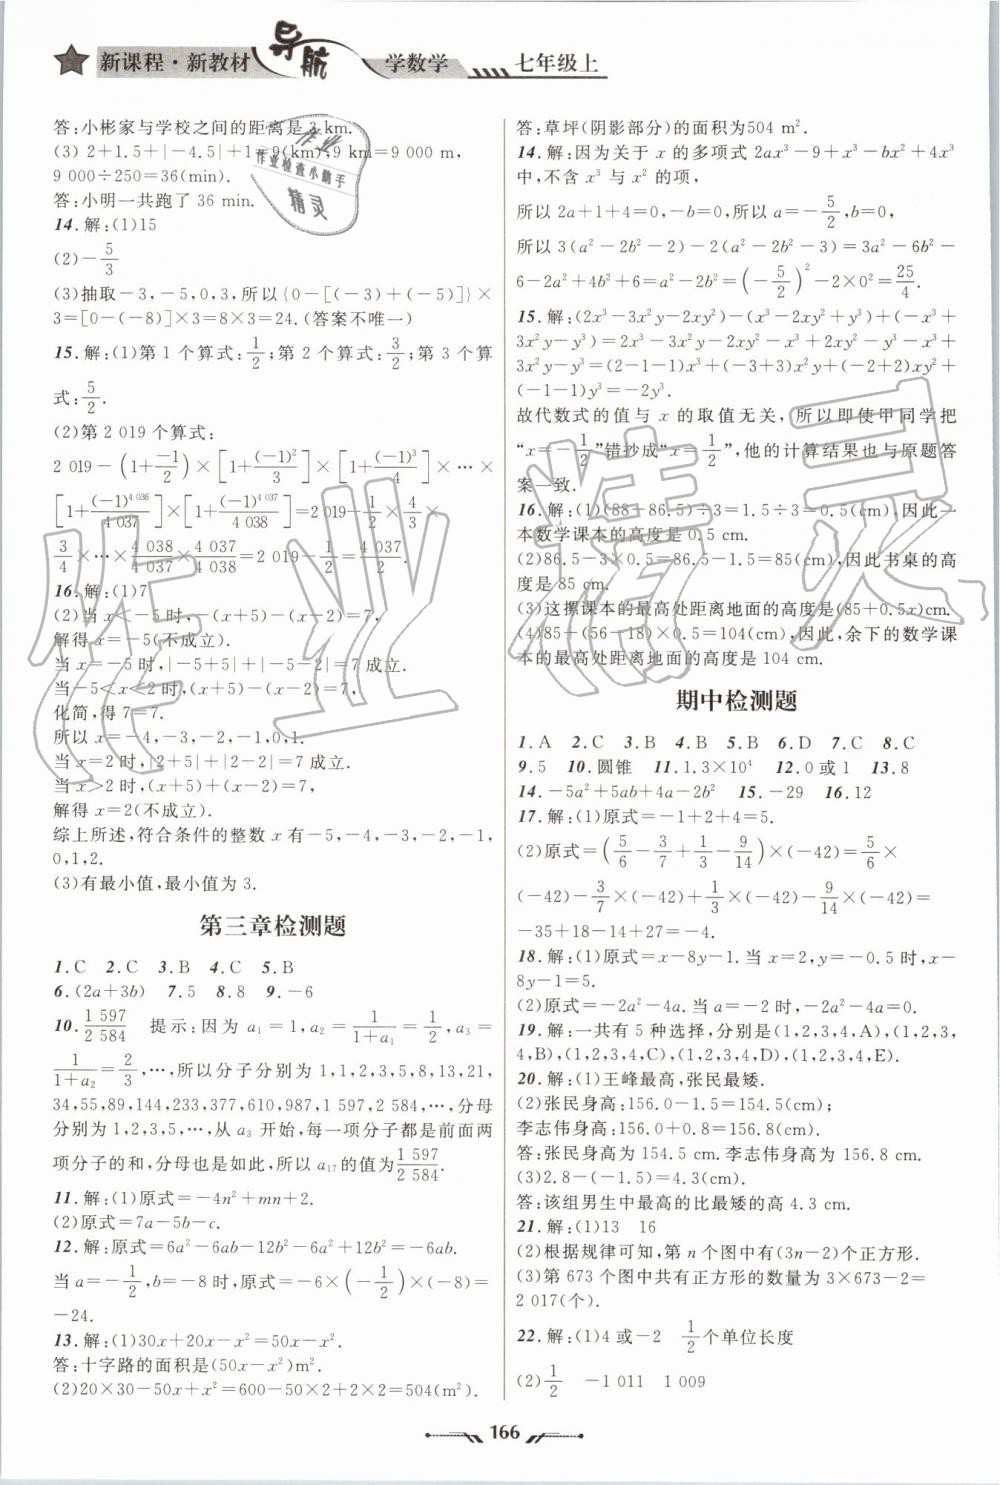 新课程·新教材 导航 学数学 七年级上
答:小彬家与学校之间的距离是3 km.
(3)2+1.5+|-4.5|+1=9(km),9 km=9 000 m,
9 000÷250=36(min).
答:小明一共跑了 36 min.
14.解:(1)15
(2)-5/3
(3)抽取-3,-5,0,3,所以{0-[(-3)+(-5)]}×
3=[0-(-8)]×3=8×3=24.(答案不唯一)
15.解:(1)第 1 个算式:1/2;第 2 个算式:3/2;第 3 个算
式:5/2.
(2)第 2 019 个算式:
2 019-(1+(-1)/2)×[1+(-1)²/3]×[1+(-1)³/4]×…×
[1+(-1)^4 036/4 037]×[1+(-1)^4 037/4 038]=2 019-1/2×4/3×
3/4×…×4 038/4 037×4 037/4 038=2 019-1/2=4 037/2.
16.解:(1)7
(2)当 x<-5 时,-(x+5)-(x-2)=7,
解得 x=-5(不成立).
当 x=-5时,|-5+5|+|-5-2|=7 成立.
当-5<x<2时,(x+5)-(x-2)=7,
化简,得 7=7.
所以 x=-4,-3,-2,-1,0,1.
当 x=2 时,|2+5|+|2-2|=7 成立.
当 x>2 时,(x+5)+(x-2)=7,
解得 x=2(不成立).
综上所述,符合条件的整数 x 有-5,-4,-3,-2,-1,
0,1,2.
(3)有最小值,最小值为 3.
第三章检测题
1.C 2.C 3.B 4.C 5.B
6.(2a+3b) 7.5 8.8 9.-6
10.1 597/2 584 提示:因为 a₁=1,a₂=1/(1+a₁)=1/2,a₃=
1/(1+a₂)=2/3,…,所以分子分别为 1,1,2,3,5,8,13,21,
34,55,89,144,233,377,610,987,1 597,2 584,…,分母
分别为 1,2,3,5,…,从 a₃ 开始,每一项分子都是前面两
项分子的和,分母也是如此,所以 a₁₇的值为1 597/2 584.
11.解:(1)原式=-4n²+mn+2.
(2)原式=7a-5b-c.
12.解:原式=6a²-6ab-12b²-6a²+12b²=-6ab.
当 a=-1/2,b=-8 时,原式=-6×(-1/2)×(-8)=
-24.
13.解:(1)30x+20x-x²=50x-x².
答:十字路的面积是(50x-x²)m².
(2)20×30-50x+x²=600-50×2+2×2=504(m²).
答:草坪(阴影部分)的面积为504 m².
14.解:因为关于 x 的多项式 2ax³-9+x³-bx²+4x³
中,不含 x³ 与 x² 的项,
所以 2a+1+4=0,-b=0,所以 a=-5/2,b=0,
所以 3(a²-2b²-2)-2(a²-2b²-3)=3a²-6b²-
6-2a²+4b²+6=a²-2b²=(-5/2)²-2×0²=25/4.
15.解:(2x³-3x²y-2xy²)-(x³-2xy²+y³)+(-x³+
3x²y-y³)=2x³-3x²y-2xy²-x³+2xy²-y³-x³+
3x²y-y³=(2-1-1)x³+(-3+3)x²y+(-2+2)xy²+
(-1-1)y³=-2y³.
故代数式的值与 x 的取值无关,所以即使甲同学把
“x=-1/2”错抄成“x=1/2”,他的计算结果也与原题答
案一致.
16.解:(1)(88-86.5)÷3=1.5÷3=0.5(cm),因此一
本数学课本的高度是 0.5 cm.
(2)86.5-3×0.5=86.5-1.5=85(cm),因此书桌的高
度是 85 cm.
(3)这摞课本的最高处距离地面的高度是(85+0.5x)cm.
(4)85+(56-18)×0.5=104(cm),因此,余下的数学课
本的最高处距离地面的高度是 104 cm.
期中检测题
1.A 2.C 3.B 4.B 5.B 6.D 7.C 8.C
9.5 10.圆锥 11.1.3×10⁴ 12.0 或 1 13.8
14.-5a²+5ab+4a-2b² 15.-29 16.12
17.解:(1)原式=-1+2+4=5.
(2)原式=(5/6-3/7+1/3-9/14)×(-42)=5/6×
(-42)-3/7×(-42)+1/3×(-42)-9/14×(-42)=
-35+18-14+27=-4.
18.解:(1)原式=x-8y-1.当 x=2,y=-0.5 时,x-
8y-1=5.
(2)原式=-2a²-4a.当 a=-2 时,-2a²-4a=0.
19.解:一共有 5 种选择,分别是(1,2,3,4,A),(1,2,3,
4,B),(1,2,3,4,C),(1,2,3,4,D),(1,2,3,4,E).
20.解:(1)王峰最高,张民最矮.
(2)张民身高:156.0-1.5=154.5(cm);
李志伟身高:156.0+0.8=156.8(cm).
答:张民身高为 154.5 cm.李志伟身高为 156.8 cm.
(3)2.8-(-1.5)=4.3(cm).
答:该组男生中最高的比最矮的高 4.3 cm.
21.解:(1)13 16
(2)根据规律可知,第 n 个图中有(3n-2)个正方形.
(3)第 673 个图中共有正方形的数量为 3×673-2=
2 017(个).
22.解:(1)4 或-2 1/2个单位长度
(2)1/2 -1 011 1 009
166
作业
作业检查小助手
精灵
作业精灵